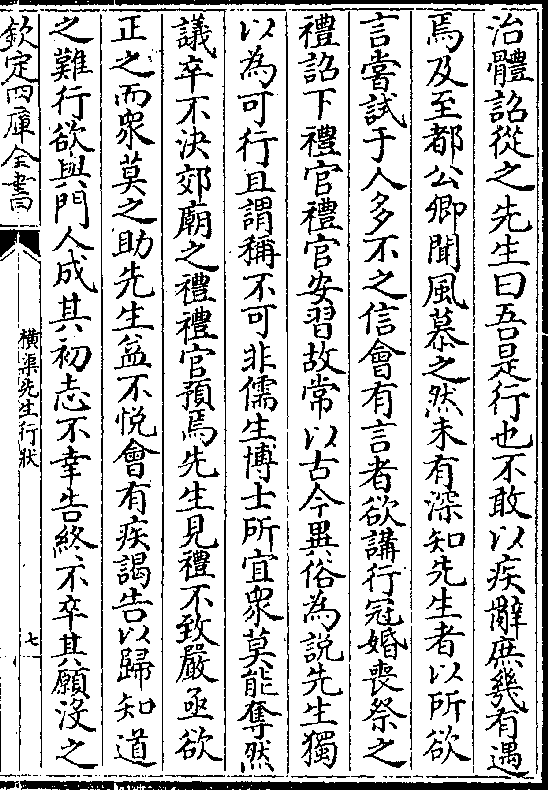 治體詔從之先生曰吾是行也不敢以疾辭庶幾有遇
焉及至都公卿聞風慕之然未有深知先生者以所欲
言嘗試于人多不之信會有言者欲講行冠婚喪祭之
禮詔下禮官禮官安習故常以古今異俗為說先生獨
以為可行且謂稱不可非儒生博士所宜衆莫能奪然
議卒不決郊廟之禮禮官預焉先生見禮不致嚴亟欲
正之而衆莫之助先生益不悅會有疾謁告以歸知道
之難行欲與門人成其初志不幸告終不卒其願沒之
欽定四庫全書
橫渠先生行狀
七